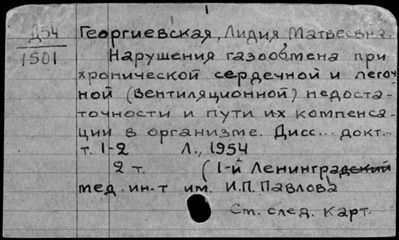 Д54 Георгиевская, Лидия Матвеевна.
1501 Нарушения газообмена при
хронической сердечной и легоч
ной (вентиляционной) недоста-
точности и пути их компенса-
ции в организме. Дисс... докт...
т. 1-2 Л., 1954
2 т. (1-й Ленинградский
мед. ин-т им. И.П. Павлова
Ст. след. карт.